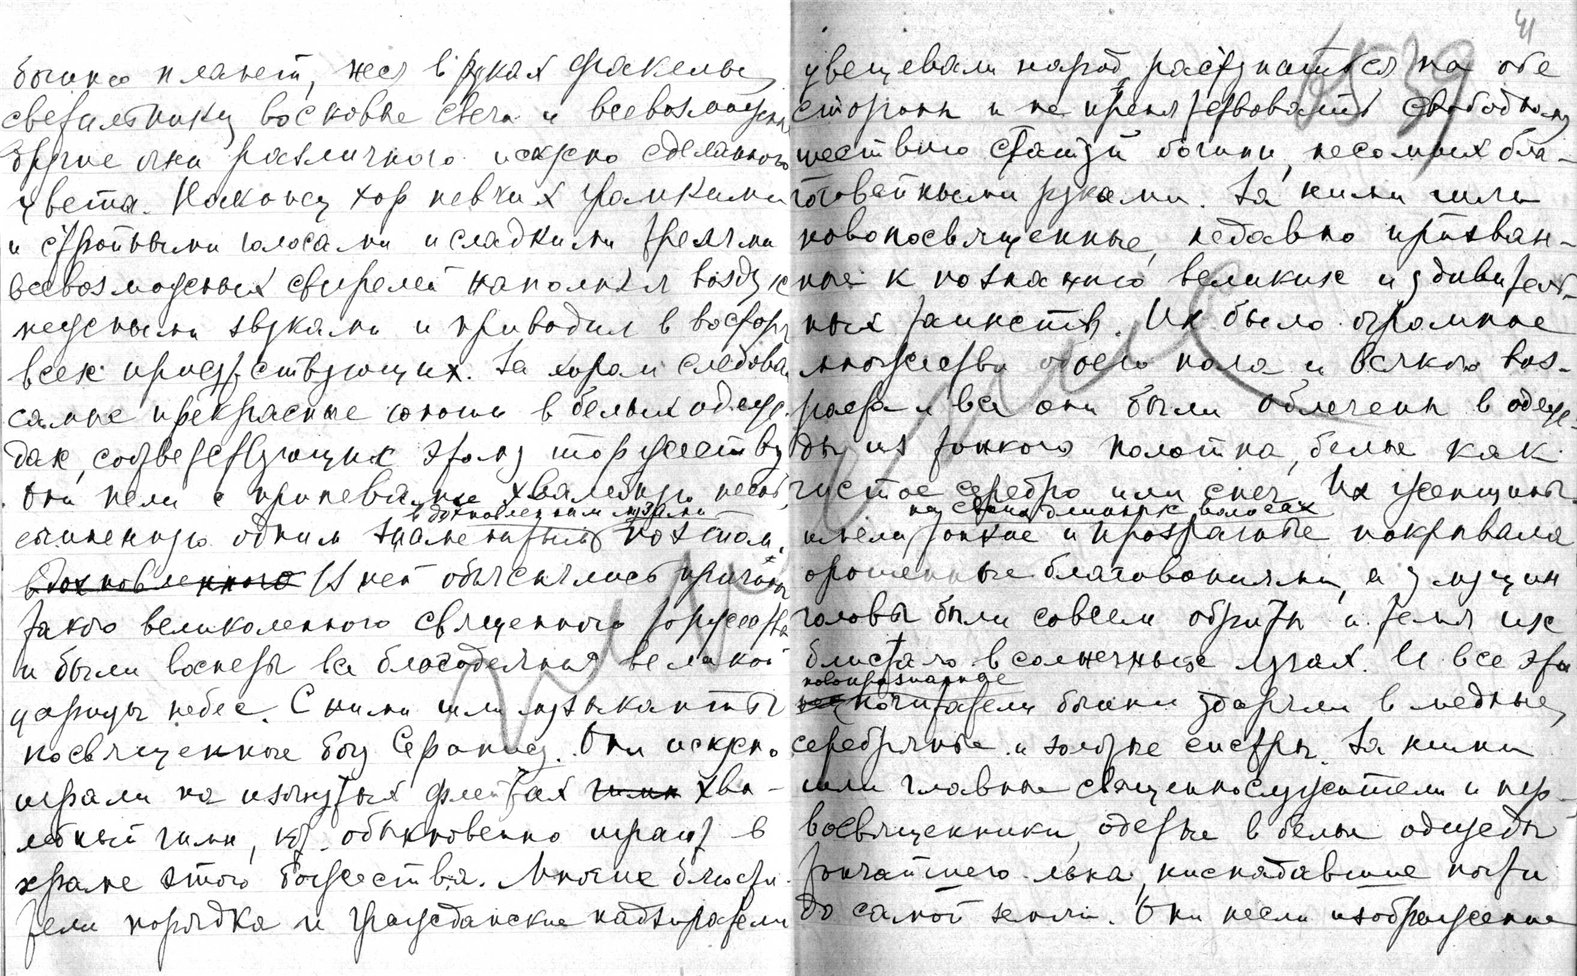 богиню планет, неся в руках факелы,
светильники, восковые свечи и всевозможные
другие огни различного искусно сделанного
цвета. Наконец хор певчих громкими
и стройными голосами и сладкими трелями
всевозможных свирелей наполнял воздух
нежными звуками и приводил в восторг
всех присутствующих. За хором следовали
самые прекрасные юноши в белых одеж-
дах, соответствующих этому торжеству
Они пели с припевами хвалебную песнь,
вдохновленным музами
сочиненную одним знаменитым поэтом,
вдохновленного В ней объяснялись причины
такого великолепного священного торжества
и были воспеты все благодеяния великой
царицы небес. С ними шли музыканты
посвященные богу Серапису. Они искусно
играли на изогнутых флейтах гимн хва-
лебный гимн, кот. обыкновенно играют в
храме этого божества. Многие блюсти-
тели порядка и гражданские надзиратели
41
увещевали народ расступаться на обе
стороны и не препятствовать свободному
шествию статуй богини, несомых бла-
гоговейными руками. За ними шли
новопосвященные, недавно призван-
ные к познанию великих и удивитель-
ных таинств. Их было огромное
множество обоего пола и всякого воз-
раста и все они были облечены в одеж-
ды из тонкого полотна, белые как
чистое серебро или снег. Их женщины
на своих длинных волосах
имели тонкие и прозрачные покрывала
орошенные благовониями, а у мужчин
головы были совсем обриты и темя их
блистало в солнечных лучах. И все эти
новопризванные
почитатели богини ударяли в медные,
серебряные и золотые систры. За ними
шли главные священнослужители и пер-
восвященники, одетые в белые одежды
тончайшего льна, ниспадавшие почти
до самой земли. Они несли изображение